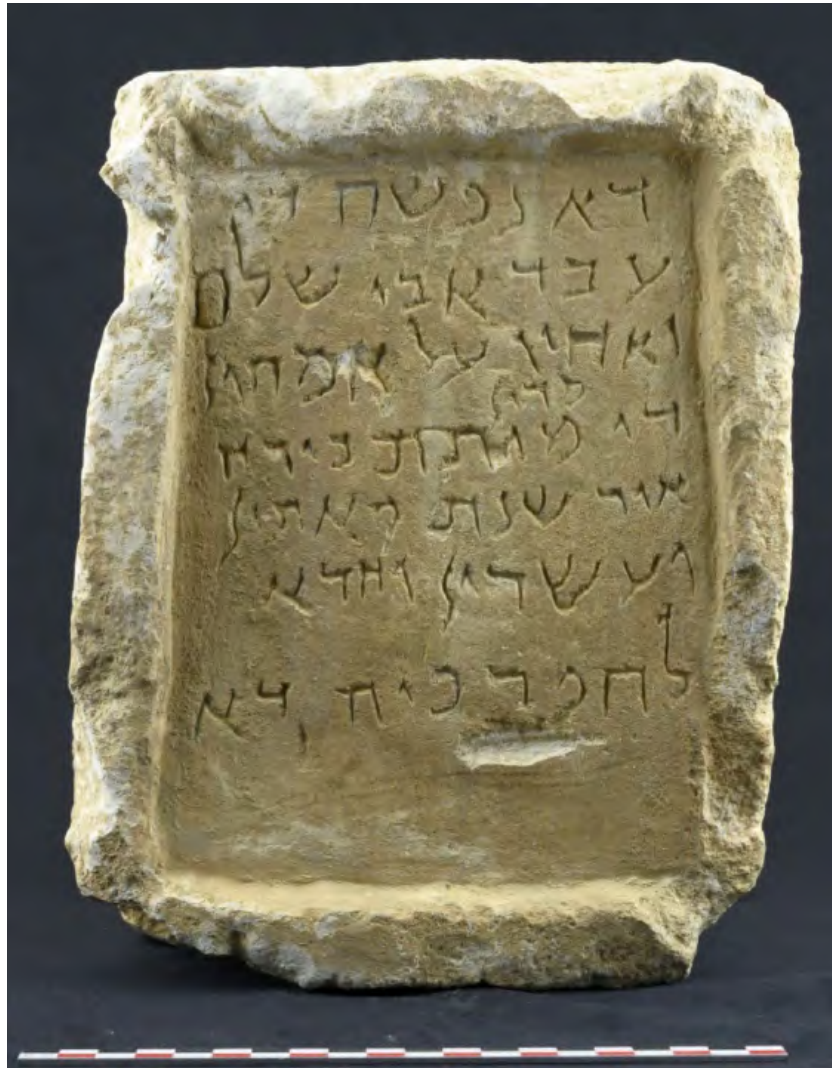 דא נפשה די
עבד אבי שלם
ואחיו על אמהון
די מיתת בירח
איר שנת מאתין
ועשרין וחדא
להפרכיה דא